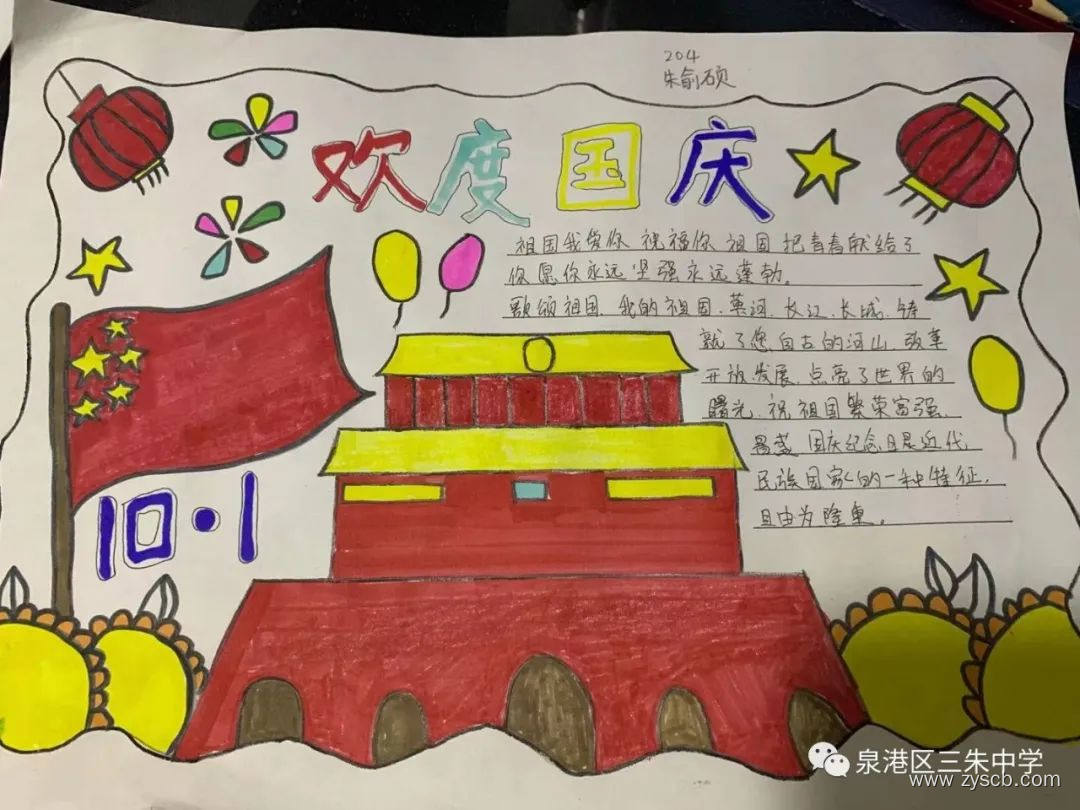 204
朱俞硕
欢度国庆
祖国我爱你 祝福你 祖国 把青春献给了
你愿你永远坚强永远蓬勃。
歌颂祖国、我的祖国、黄河、长江、长城、铸
就了您自古的河山、改革
开放、发展、点亮了世界的
曙光、祝祖国繁荣富强、
昌盛 国庆纪念日是近代
民族国家的一种特征,
且由为隆重。
10·1
泉港区三朱中学
www.zyscb.com